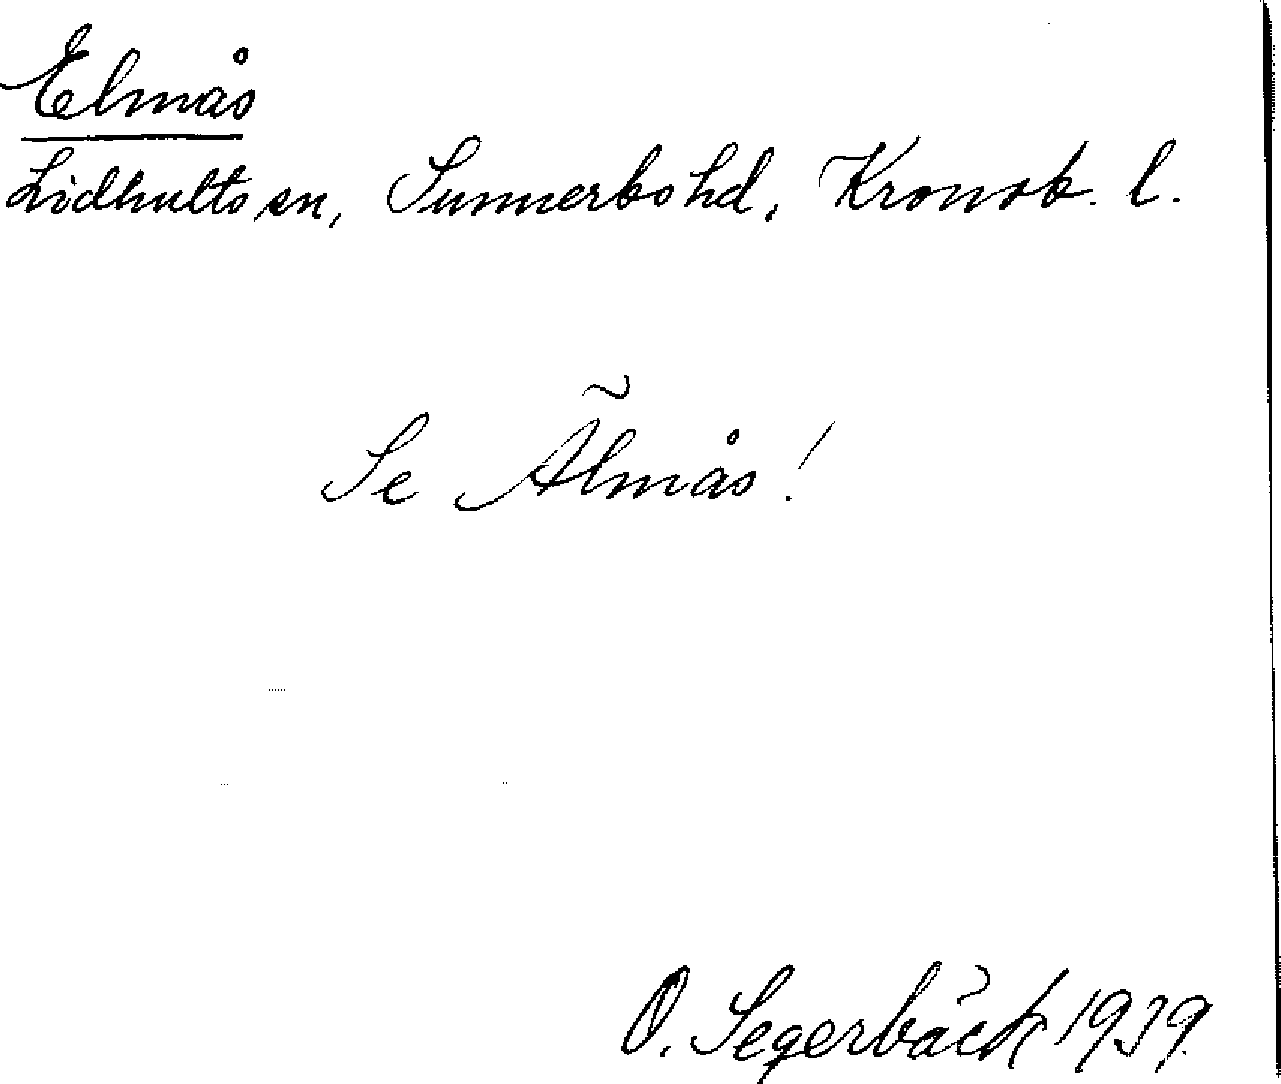 Elmås
Lidhults sn, Sunnerbo hd, Kronob. l.
Se Älmås!
O. Segerbäck 1939